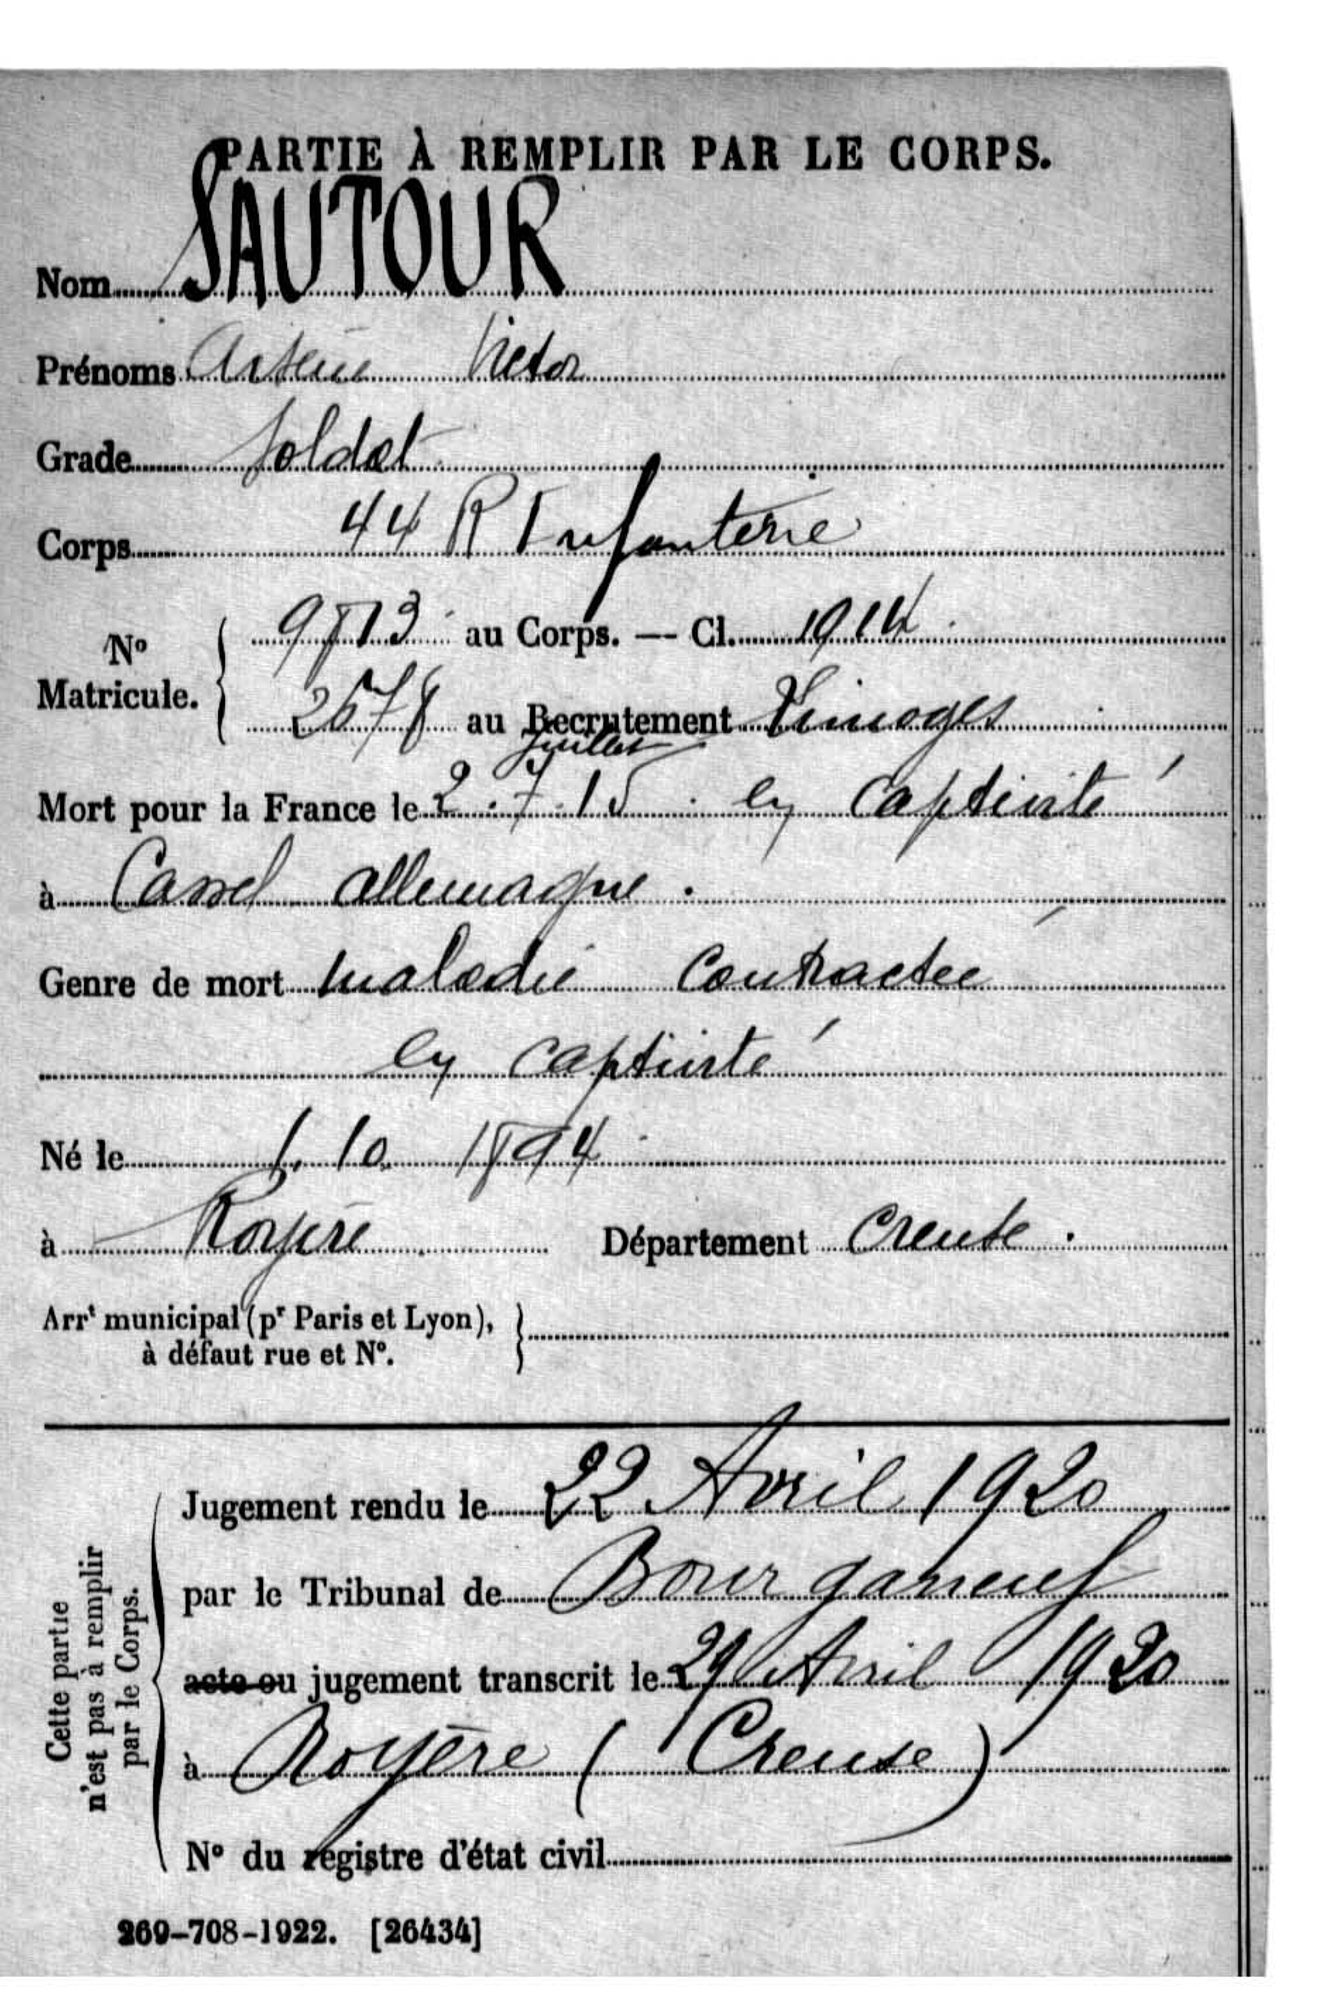 PARTIE À REMPLIR PAR LE CORPS.
Nom SAUTOUR
Prénoms Arsène Victor
Grade Soldat
Corps 44 R Infanterie
N° Matricule. 9813 au Corps. — Cl. 1914
2678 au Recrutement Limoges
juillet
Mort pour la France le 2.7.15. en captivité
à Cassel allemagne.
Genre de mort maladie contractée
en captivité
Né le 1. 10. 1894
à Royère Département Creuse.
Arrt municipal (pr Paris et Lyon),
à défaut rue et N°.
Cette partie
n'est pas à remplir
par le Corps.
Jugement rendu le 22 Avril 1920
par le Tribunal de Bourganeuf
acte ou jugement transcrit le 29 Avril 1920
à Royère (Creuse)
N° du registre d'état civil
269-708-1922. [26434]